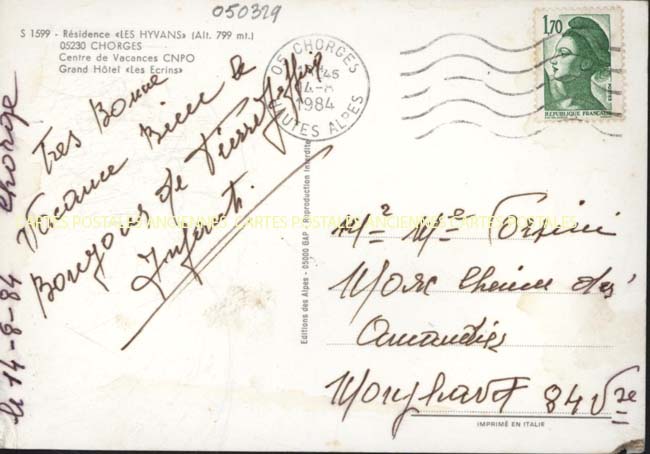 050329
S 1599 - Résidence «LES HYVANS» (Alt. 799 mt.)
05230 CHORGES
Centre de Vacances CNPO
Grand Hôtel «Les Ecrins»
05 CHORGES
45
14-8
1984
HAUTES ALPES
1,70
POSTES
REPUBLIQUE FRANÇAISE
le 14-8-84 Chorge
Tres Bonne
Vacance Bien le
Bonjour de Pierrefeffin
CARTES POSTALES ANCIENNES CARTES POSTALES ANCIENNES CARTES POSTALES ANCIENNES
Editions des Alpes - 05000 GAP - Reproduction Interdite
Mr Me
chemin des
Amandies
84 Vse
IMPRIMÉ EN ITALIE